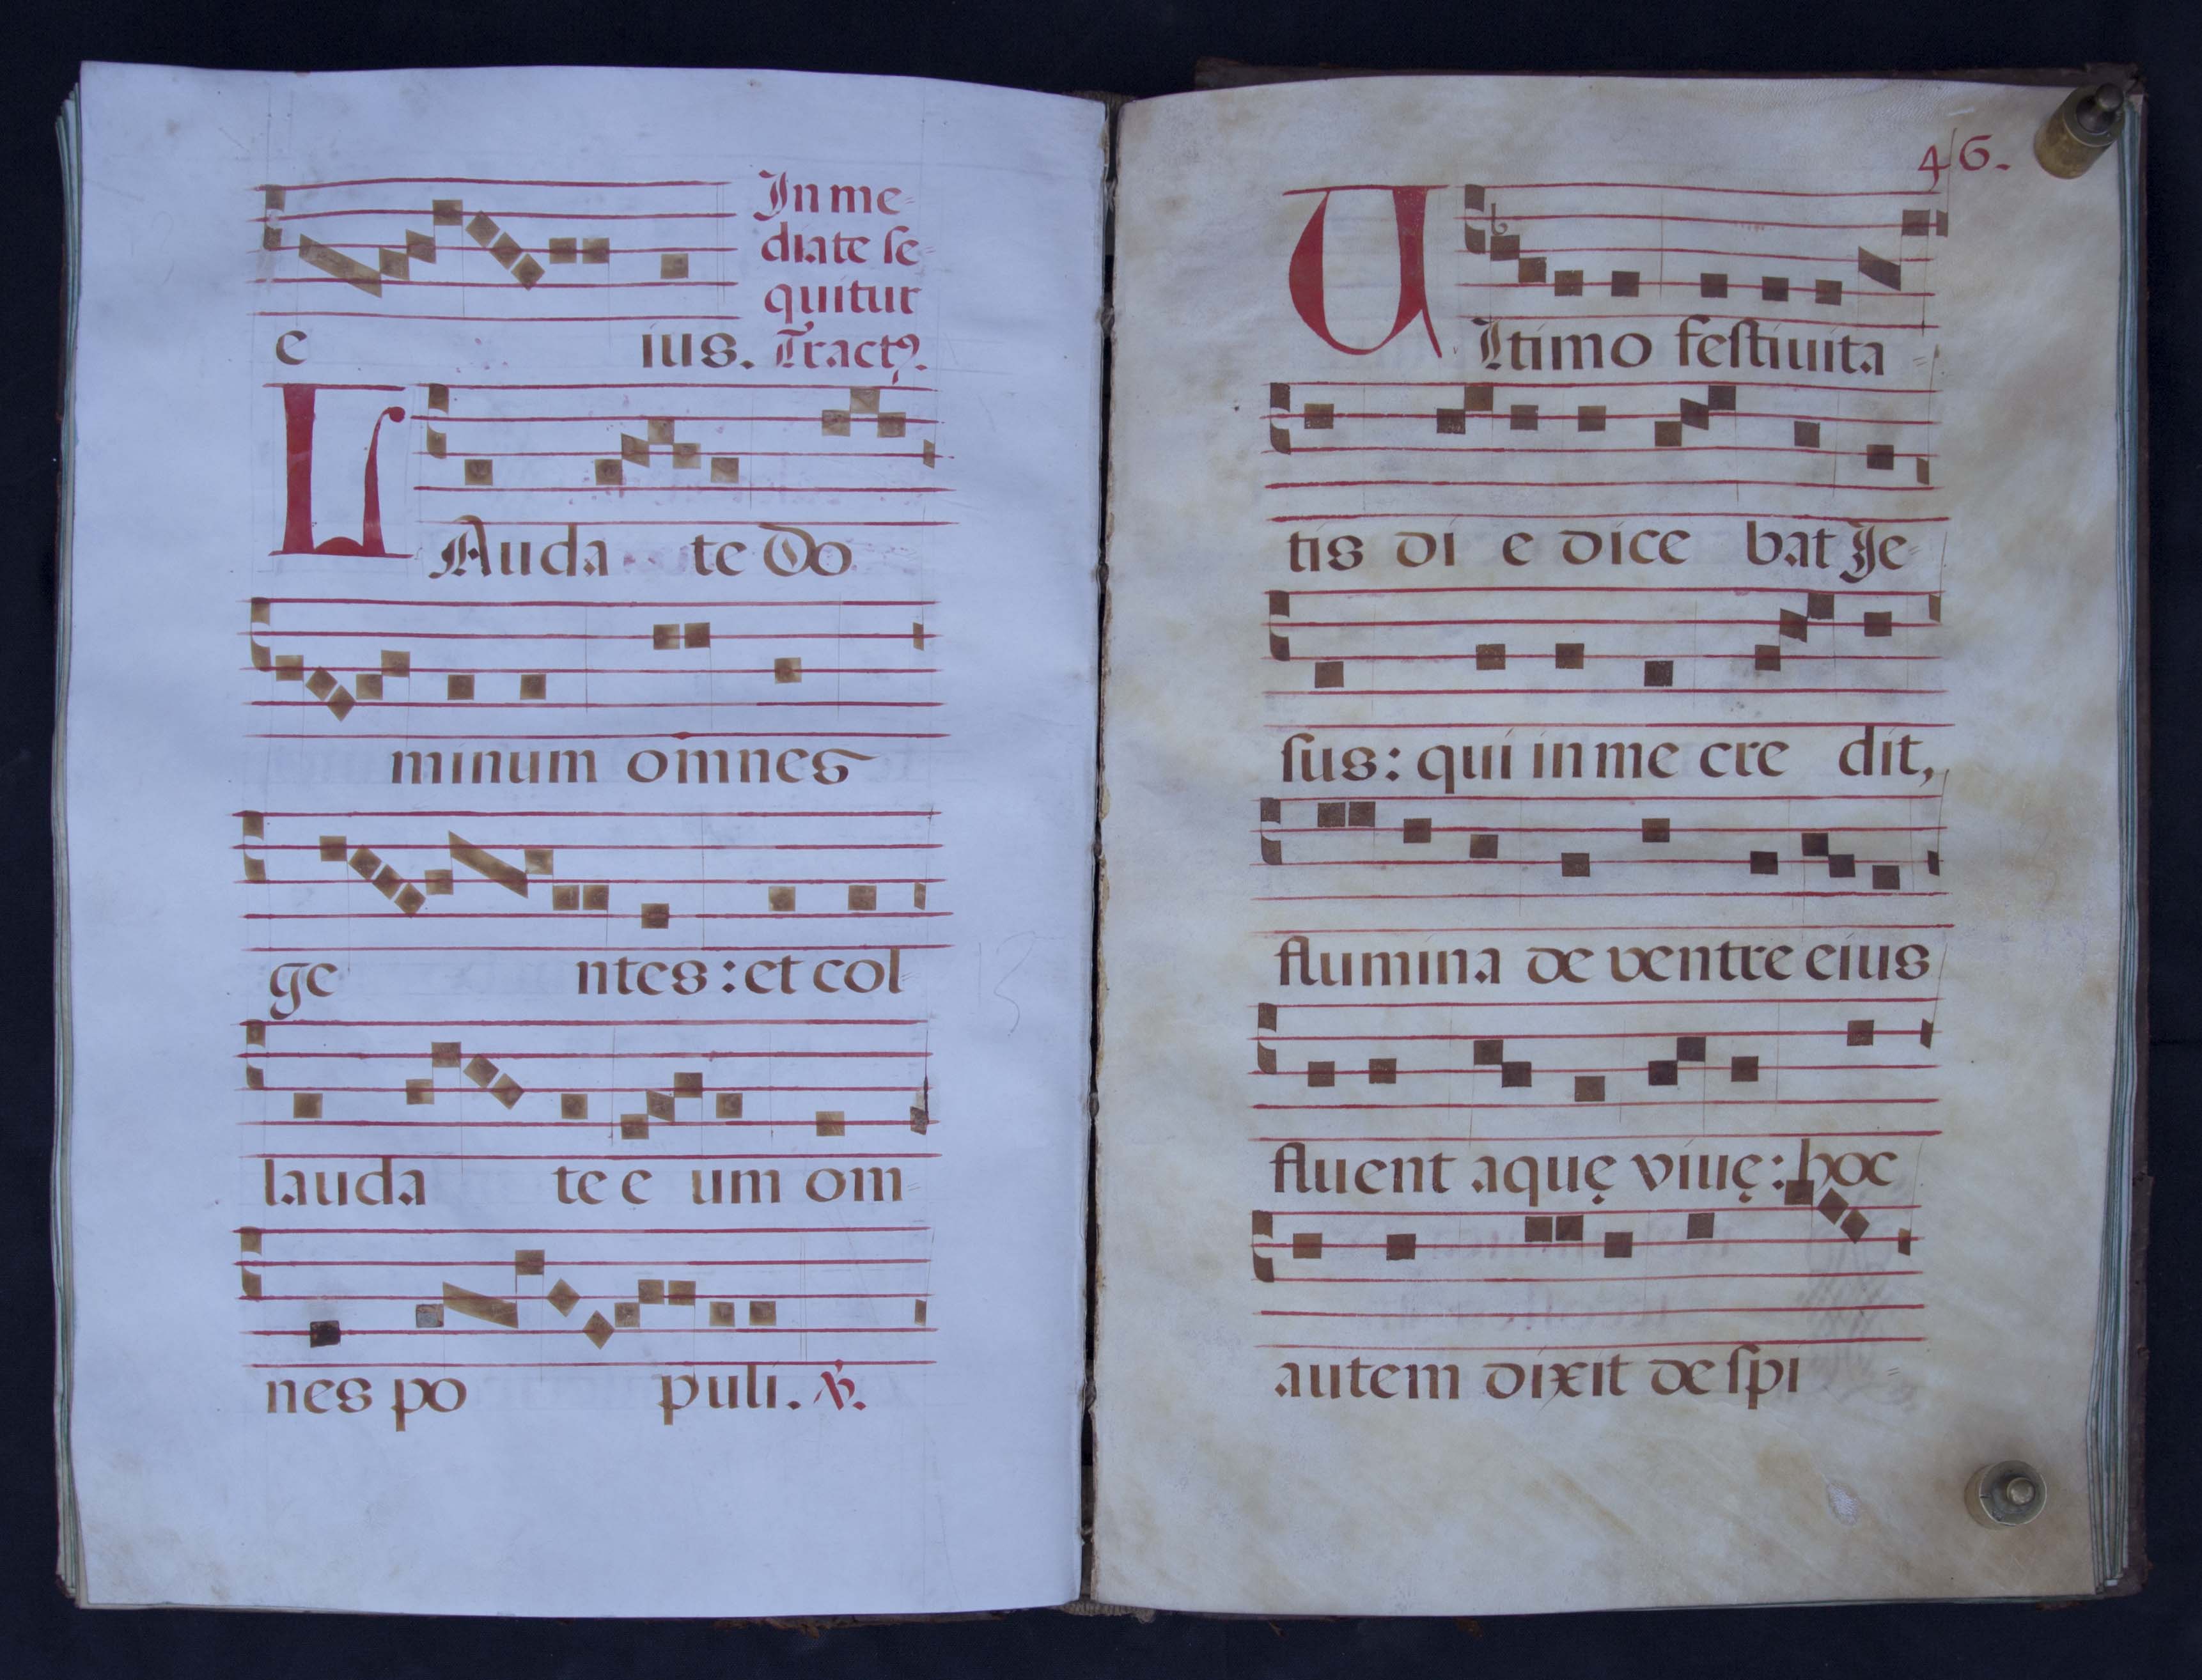 In me-
diate se-
quitur
e ius. Tractꝰ.
LAuda te Do
minum omnes
ge ntes: et col-
lauda te e um om-
nes po puli. ℣.
46.
Ultimo festiuita-
tis di e dice bat Je-
sus: qui in me cre dit,
flumina de ventre eius
fluent aquę viuę: hoc
autem dixit de spi-